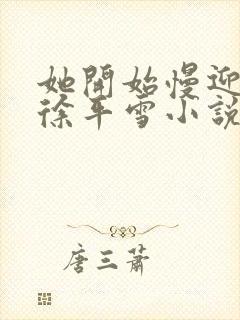 她開始慢迎
徐平雪小說
唐三蕭